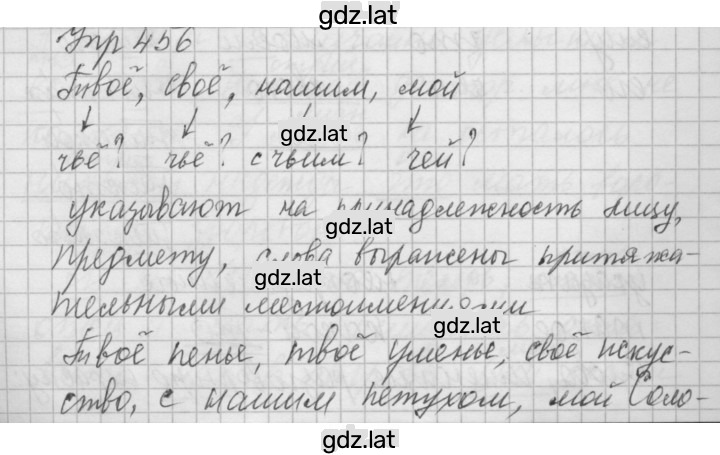 gdz.lat
Упр 456
Твоё, своё, нашим, мой
gdz.lat
чьё? чьё? с чьим? чей?
указывают на принадлежность лицу,
gdz.lat
предмету, слова выражены притяжа-
gdz.lat
тельными местоимениями
gdz.lat
Твоё пенье, твоё уменье, своё искус-
ство, с нашим петухом, мой Соло-
gdz.lat